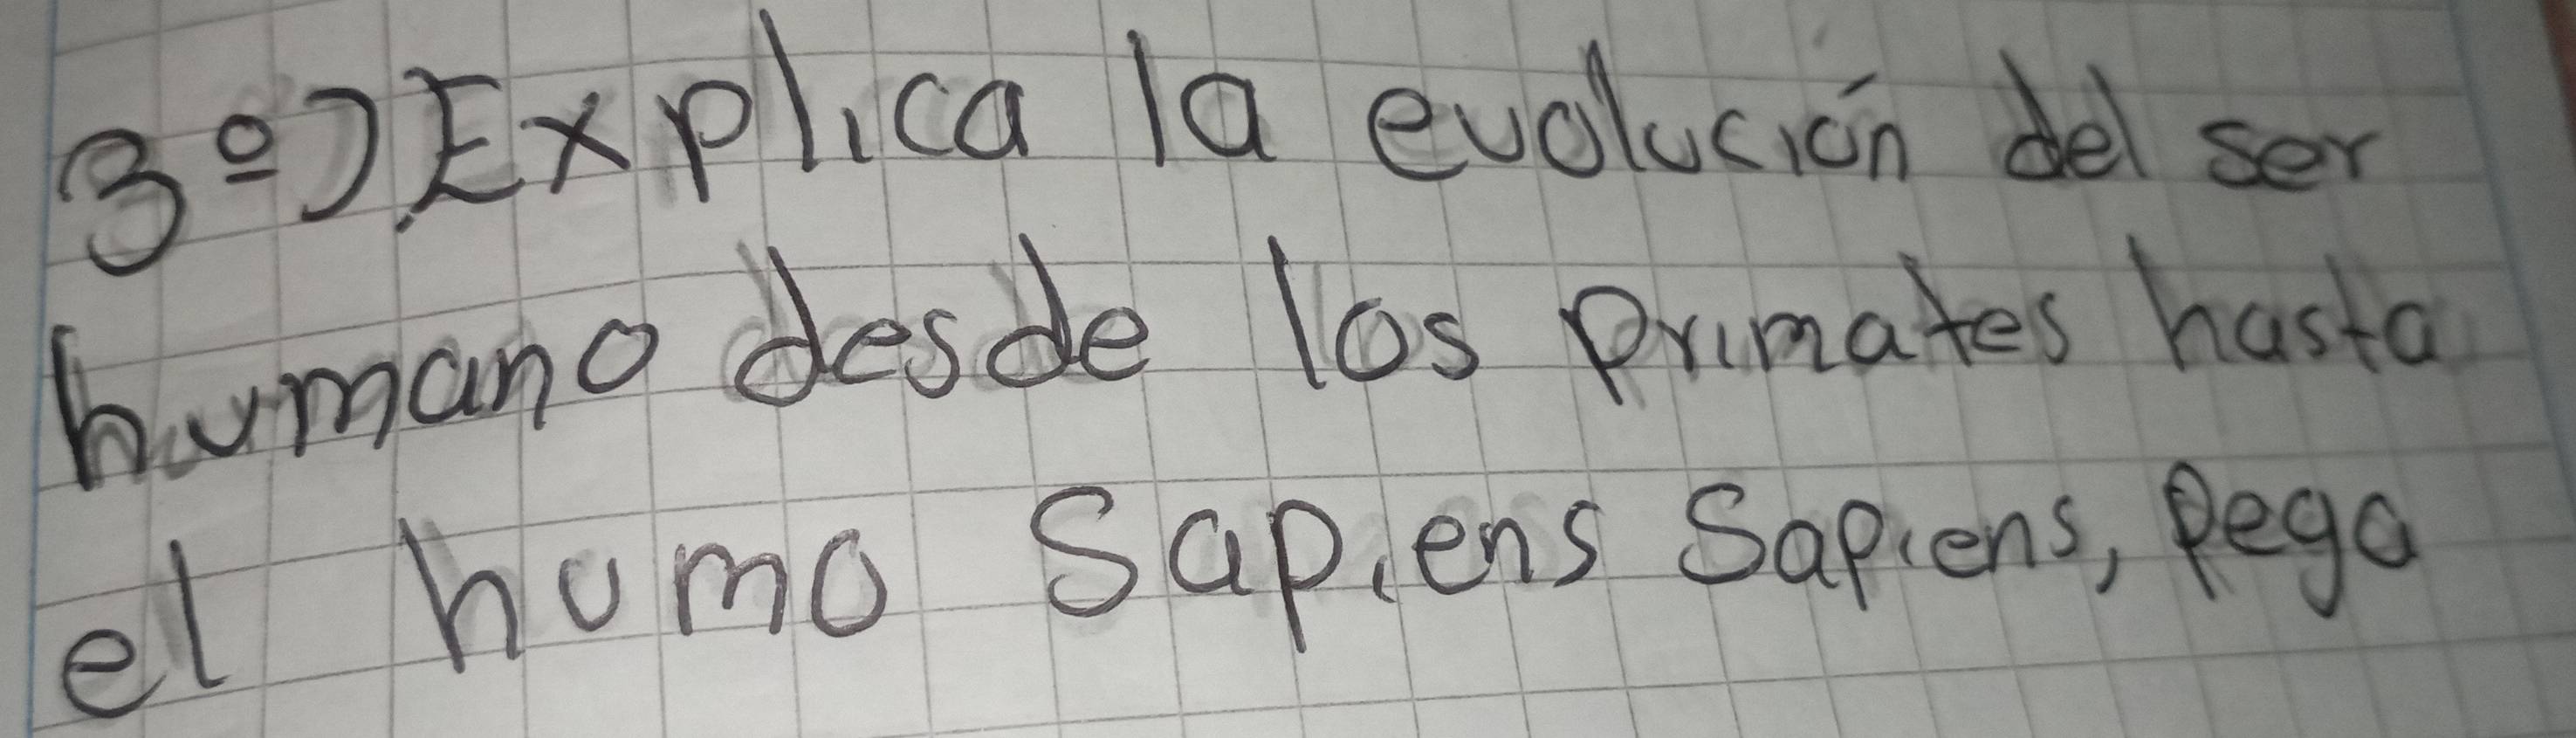 3º) Explica la evolución del ser
humano desde los primates hasta
el humo Sapiens Sapiens, pega